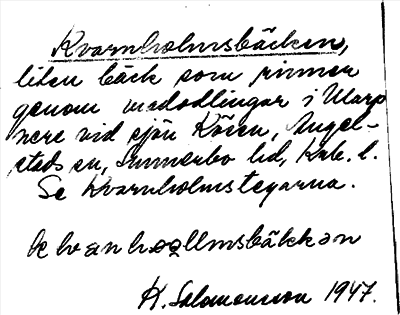 Kvarnholmsbäcken,
liten bäck som rinner
genom madodlingar i Ularp
nere vid sjön Kösen, Angel-
stads sn, Sunnerbo hd, Krb. l.
Se Kvarnholmstegarna.
kvanhoollmsbäkkan
K. Salomonsson 1947.